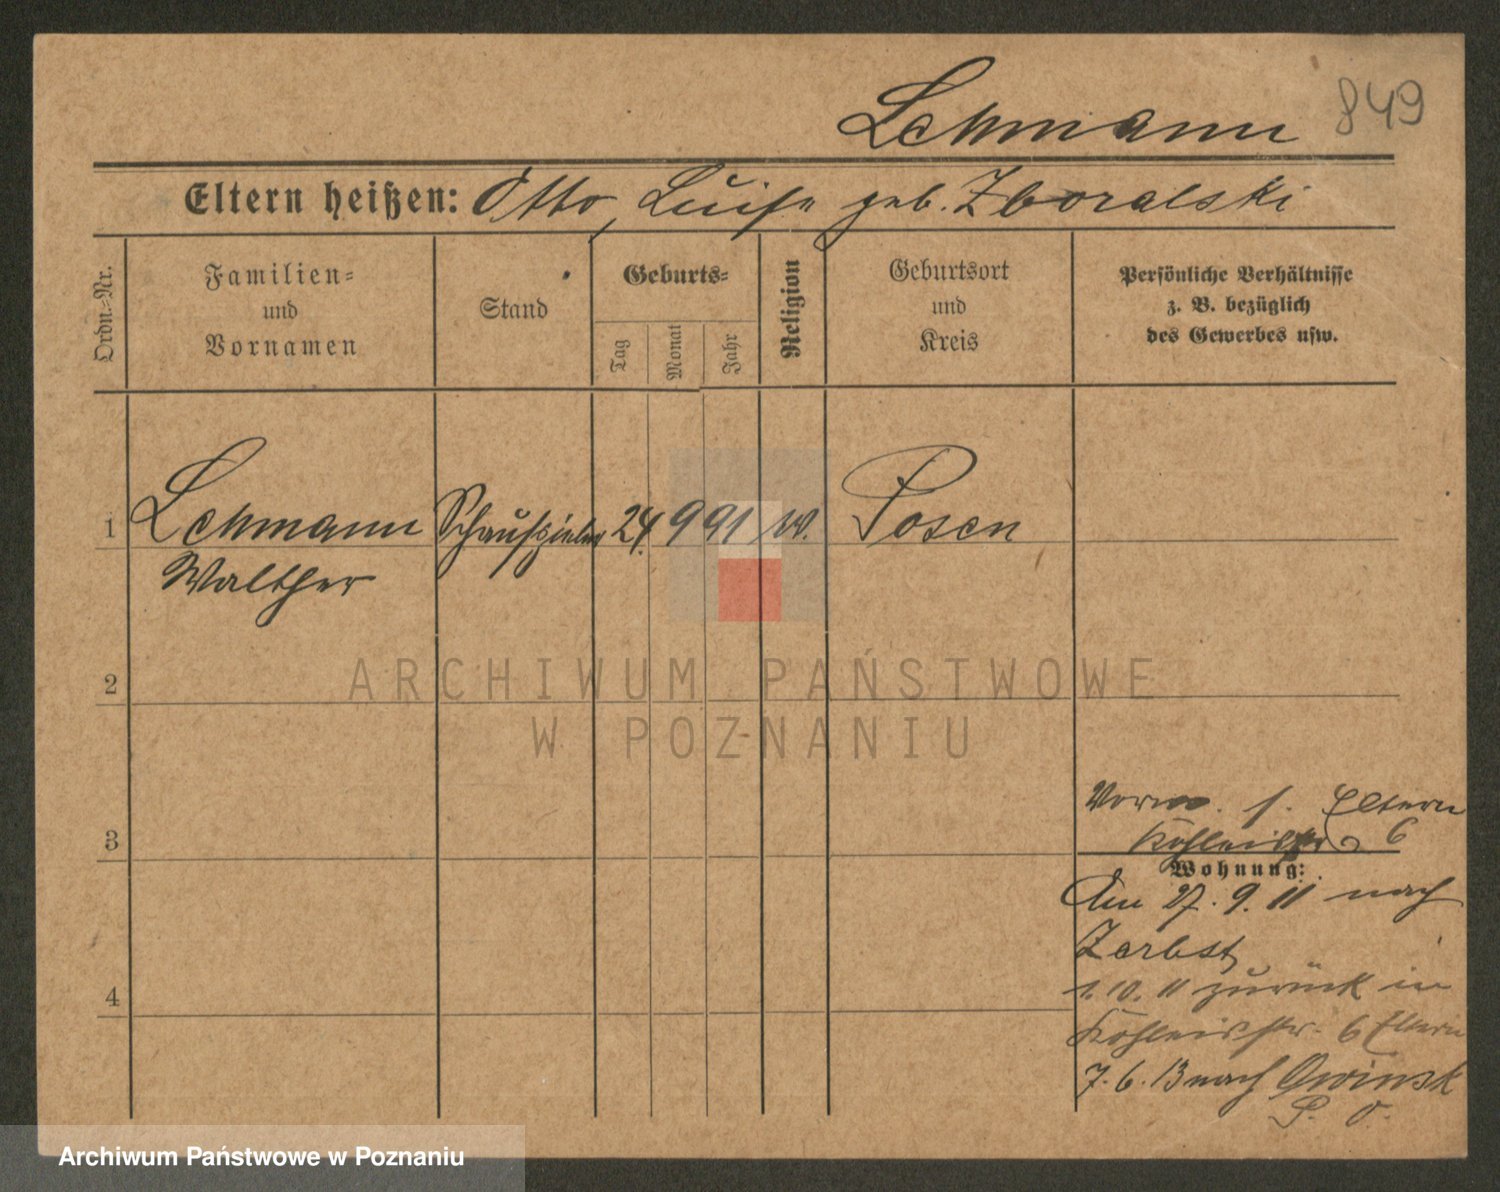 Lehmann 849
Eltern heißen: Otto, Luise geb. Zboralski
Ordn.-Nr.
Familien-
und
Vornamen
Stand
Geburts-
Tag
Monat
Jahr
Religion
Geburtsort
und
Kreis
Persönliche Verhältnisse
z. B. bezüglich
des Gewerbes usw.
1 Lehmann Schauspieler 24. 9 91 Posen
Walther
2
3
4
Eltern
6
Wohnung:
Am 27. 9. 11 nach
Zerbst
1. 10. 11 zurück in
6 Eltern
7. 6. 13 nach Owinsk
P. O.
ARCHIWUM PAŃSTWOWE
W POZNANIU
Archiwum Państwowe w Poznaniu